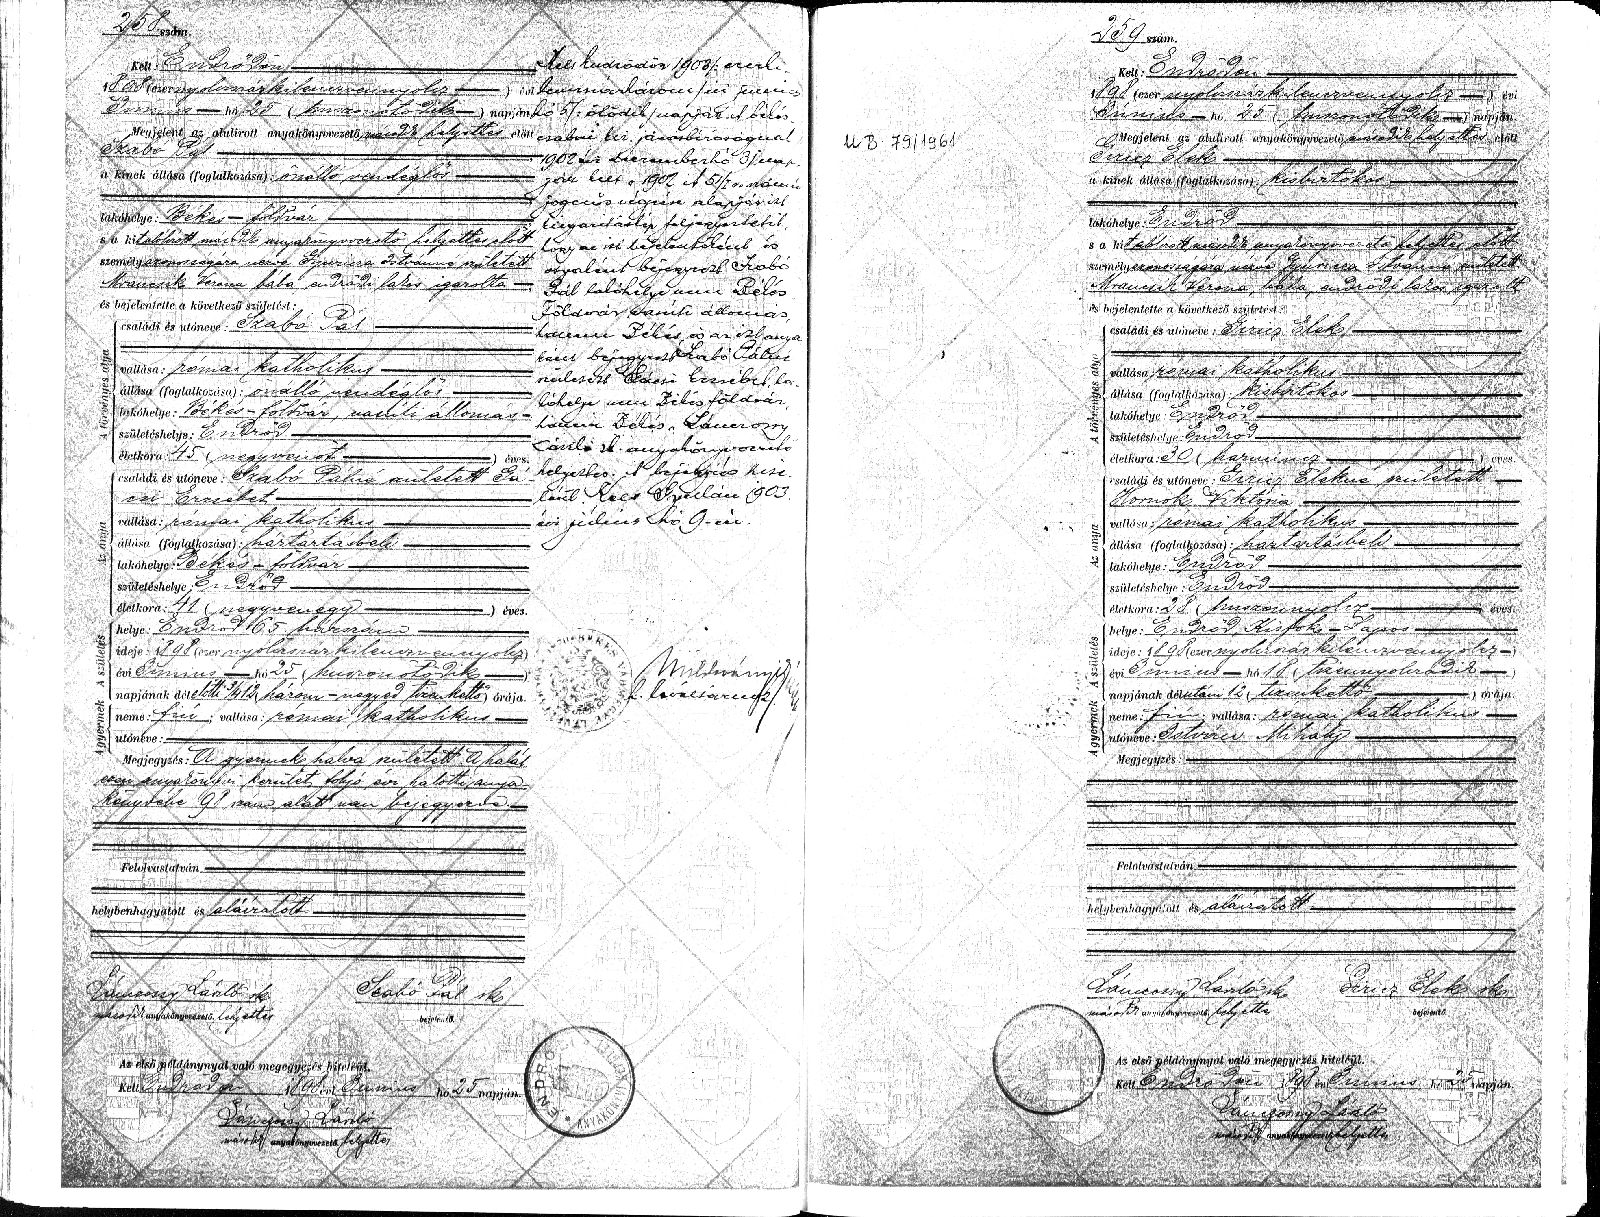 258 szám.
Kelt: Endrődön
1898 (ezer nyolcszázkilencvennyolcz) évi
Junius hó 25 (huszonötödik) napján
Megjelent az alulirott anyakönyvvezető második helyettes előtt
Szabó Pál
a kinek állása (foglalkozása): önálló vendéglős
lakóhelye: Békés-földvár
s a kit alólirott második anyakönyvvezető helyettes előtt
személyazonosságára nézve Gyuricza Istvánné született
Mrancsik Verona bába endrődi lakos igazolta
és bejelentette a következő születést:
A törvényes atya
családi és utóneve: Szabó Pál
vallása: római katholikus
állása (foglalkozása): önálló vendéglős
lakóhelye: Békés-földvár, vasuti állomás
születéshelye: Endrőd
életkora: 45 (negyvenöt) éves.
Az anya
családi és utóneve: Szabó Pálné született
Erzsébet
vallása: római katholikus
állása (foglalkozása): háztartásbeli
lakóhelye: Békés-földvár
születéshelye: Endrőd
életkora: 41 (negyvenegy) éves.
A születés
helye: Endrőd 65 házszám
ideje: 1898 (ezer nyolcszázkilencvennyolcz)
évi Junius hó 25 (huszonötödik)
napjának délelőtti 3/4 12 (három-negyed tizenkettő) órája.
A gyermek
neme: fiú; vallása: római katholikus
utóneve:
Megjegyzés: A gyermek halva született. A halál
anyakönyvi kerület folyó évi halotti anya-
könyvébe 98 szám alatt van bejegyezve
Felolvastatván
helybenhagyatott és aláiratott
Lánczossy László sk
második anyakönyvvezető helyettes
Szabó Pál sk
bejelentő.
Az első példánynyal való megegyezés hiteléül.
Kelt Endrődön 1898 évi Junius hó 25 napján.
Lánczossy László
második anyakönyvvezető helyettes
Kelt Endrődön 1903/: ezerki-
lenczszázhárom/ évi junius
hó 5/: ötödik/ napján. A békés-
csabai kir. járásbiróságnak
1902 évi Deczemberhó
jogerős végzése alapján
kiigazitásképp feljegyeztetik,
hogy az itt bejelentőként és
atyaként bejegyzett Szabó
Pál lakóhelye nem Békés
Földvár vasuti állomás,
hanem Békés, és az itt anya
ként bejegyzett Szabó Pálné
született Erzsébet la-
kóhelye nem Békés földvár,
hanem Békés. Lánczossy
László h. anyakönyvvezető
helyettes. A bejegyzés hite-
léül Kelt Gyulán 1903.
évi július hó 9-én.
főlevéltárnok
ENDRŐD
259 szám.
Kelt: Endrődön
1898 (ezer nyolcszázkilencvennyolcz) évi
Junius hó 25 (huszonötödik) napján
Megjelent az alulirott anyakönyvvezető második helyettes előtt
Giricz Elek
a kinek állása (foglalkozása): kisbirtokos
lakóhelye: Endrőd
s a kit alólirott második anyakönyvvezető helyettes előtt
személyazonosságára nézve Gyuricza Istvánné született
Mrancsik Verona, bába, endrődi lakos igazolt
és bejelentette a következő születést:
A törvényes atya
családi és utóneve: Giricz Elek
vallása: római katholikus
állása (foglalkozása): kisbirtokos
lakóhelye: Endrőd
születéshelye: Endrőd
életkora: 30 (harmincz) éves.
Az anya
családi és utóneve: Giricz Elekné született
Hornok Viktória
vallása: római katholikus
állása (foglalkozása): háztartásbeli
lakóhelye: Endrőd
születéshelye: Endrőd
életkora: 28 (huszonnyolcz) éves.
A születés
helye: Endrőd, Kisfok-Papos
ideje: 1898 (ezer nyolcszázkilencvennyolcz)
évi Junius hó 18 (tizennyolczadik)
napjának délutáni 12 (tizenkettő) órája.
A gyermek
neme: fiú; vallása: római katholikus
utóneve: István Mihály
Megjegyzés:
Felolvastatván
helybenhagyatott és aláiratott
Lánczossy László sk
második anyakönyvvezető helyettes
Giricz Elek sk
bejelentő.
Az első példánynyal való megegyezés hiteléül.
Kelt Endrődön 1898 évi Junius hó 25 napján.
Lánczossy László
második anyakönyvvezető helyettes
U B. 79/1961